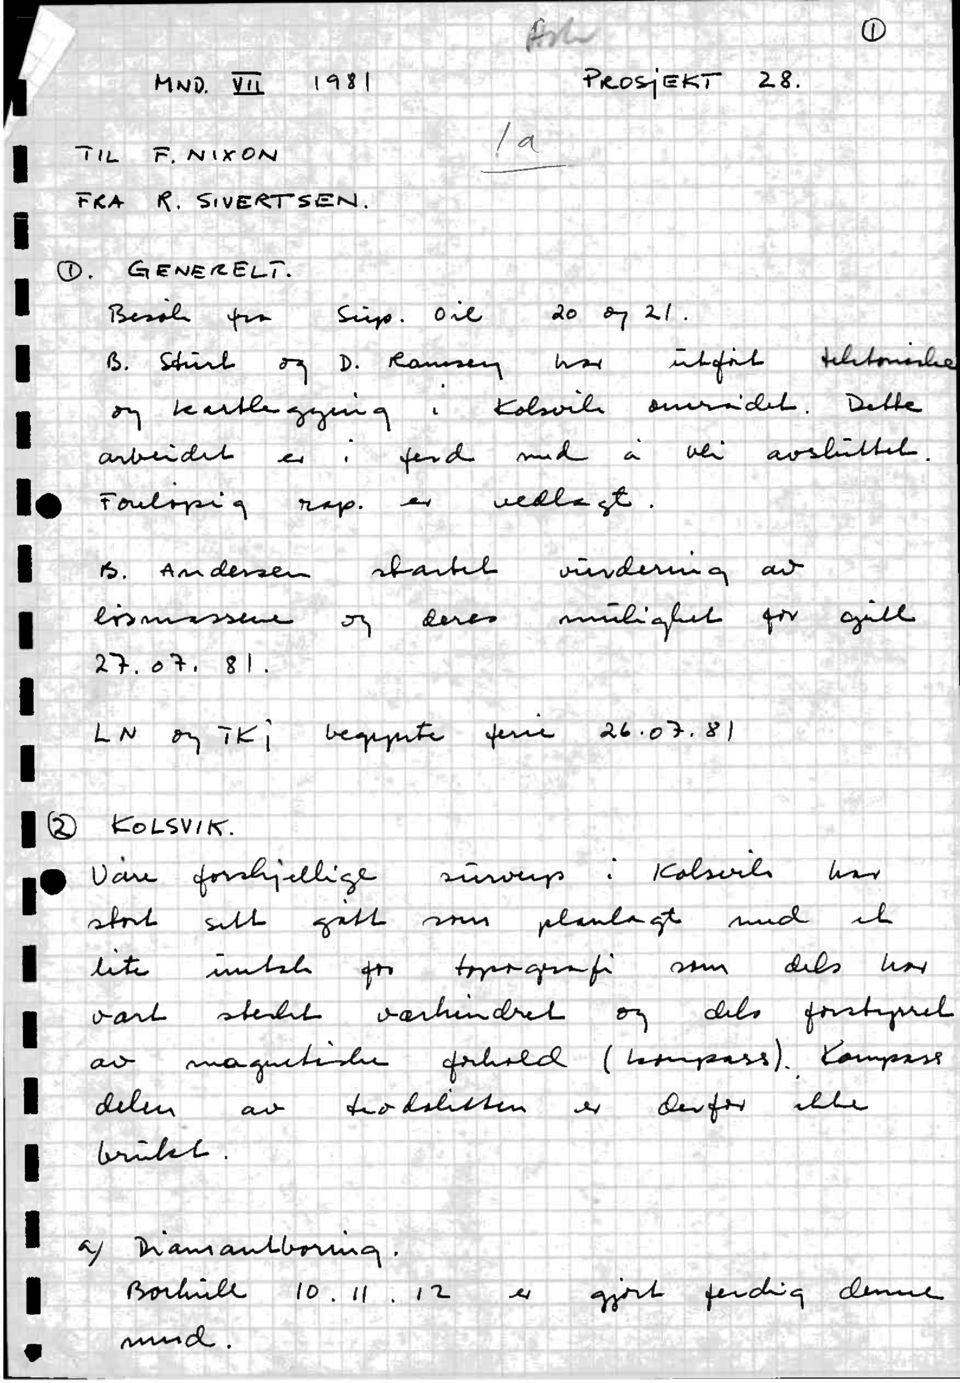 ①
MND. VII 1981 PROSJEKT 28.
1a
TIL F. NIXON
FRA R. SIVERTSEN.
①. GENERELT.
Besøk fra Sup. Oil 20 og 21.
B. Sturt og D. Ramsey har utført tektoniske
og kartlegging i Kolsvik området. Dette
arbeidet er i ferd med å bli avsluttet.
Foreløpig rap. er vedlagt.
B. Andersen startet vurdering av
løsmassene og deres mulighet for gull
27.07.81.
LN og TKj begynte ferie 26.07.81
② KOLSVIK.
Våre forskjellige surveys i Kolsvik har
stort sett gått som planlagt med et
lite unntak for topografi som dels har
vært sterkt værhindret og dels forstyrret
av magnetiske forhold (kompass). Kompass
delen av teodolitten er derfor ikke
brukt.
a) Diamantboring.
Borhull 10. 11. 12 er gjort ferdig denne
mnd.